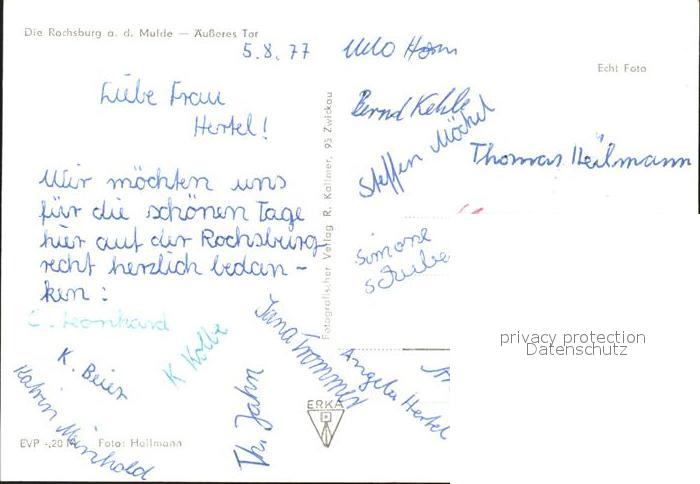 Die Rochsburg a. d. Mulde — Äußeres Tor
5.8.77
Udo Horn
Echt Foto
Liebe Frau
Hertel!
Bernd Kehle
Steffen Möckel
Thomas Heilmann
Wir möchten uns
für die schönen Tage
hier auf der Rochsburg
recht herzlich bedan-
ken:
Simone
Schube
Fotografischer Verlag R. Kallmer, 95 Zwickau
C. Leonhard
K. Beier
K Kolbe
Jana Trommer
Angela Hertel
Th. Jahn
Katrin Meinhold
privacy protection
Datenschutz
ERKA
EVP -,20 M Foto: Hallmann